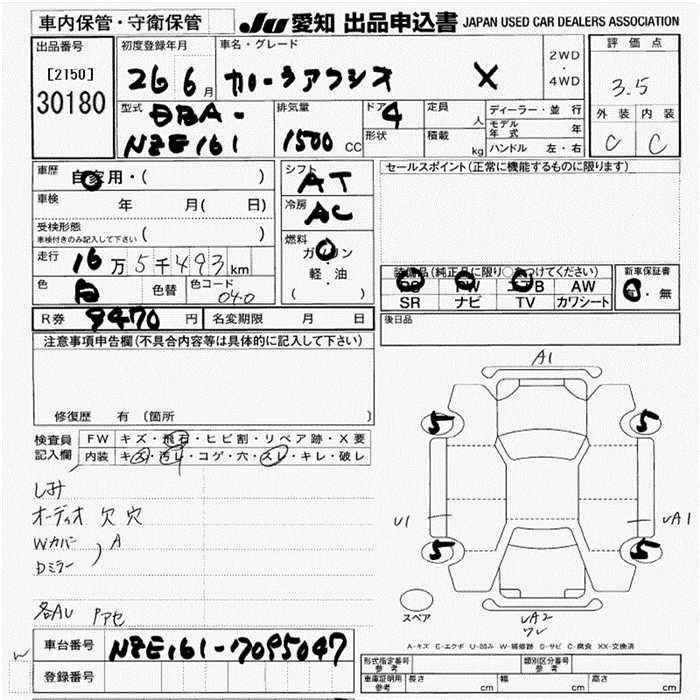 車内保管・守衛保管
JU 愛知 出品申込書 JAPAN USED CAR DEALERS ASSOCIATION
出品番号
[2150]
30180
初度登録年月
26 6月
車名・グレード
カローラアクシオ X
2WD
・
4WD
評価点
3.5
外装 内装
C C
型式
DBA-
NZE161
排気量
1500 CC
ドア 4
形状
定員 人
積載 kg
ディーラー・並 行
モデル年式 年
ハンドル 左・右
車歴
自家用・( )
車検 年 月( 日)
受検形態
車検付きのみ記入して下さい ( )
走行 16万5千493km
色 白 色替 色コード 040
シフト
AT
冷房
AC
燃料
ガソリン
軽・油
( )
セールスポイント(正常に機能するものに限ります)
装備品(純正品に限り○をつけてください)
PS PW エアB AW
SR ナビ TV カワシート
新車保証書
有・無
R券 9470円 名変期限 月 日
後日品
注意事項申告欄(不具合内容等は具体的に記入して下さい)
修復歴 有〔箇所 〕
検査員
記入欄
FW キズ・飛石・ヒビ割・リペア跡・X要
内装 キズ・汚レ・コゲ・穴・スレ・キレ・破レ
しみ
オーディオ 欠 穴
Wカバー
Dミラー
A
各AU Pアセ
A1
5
5
U1
UA1
5
5
スペア
UA2
ワレ
A-キズ E-エクボ U-凹み W-補修跡 S-サビ C-腐食 XX-交換済
W
車台番号 NZE161-7095047
登録番号
形式指定番号
参考
類別区分番号
参考
車庫証明用
参考
長さ cm
幅 cm
高さ cm